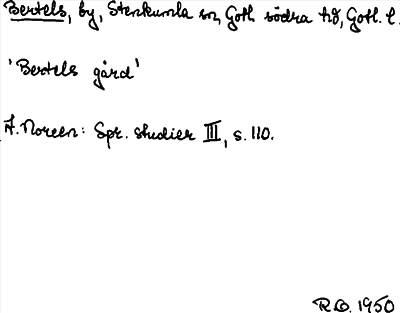 Bertels, by, Stenkumla sn, Gotl. södra hd, Gotl. l.
'Bertels gård'
A. Noreen: Spr. studier III, s. 110.
R.O. 1950